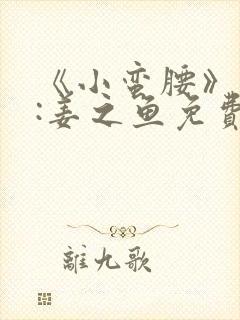 《小蛮腰》
:姜之鱼免費
離九歌